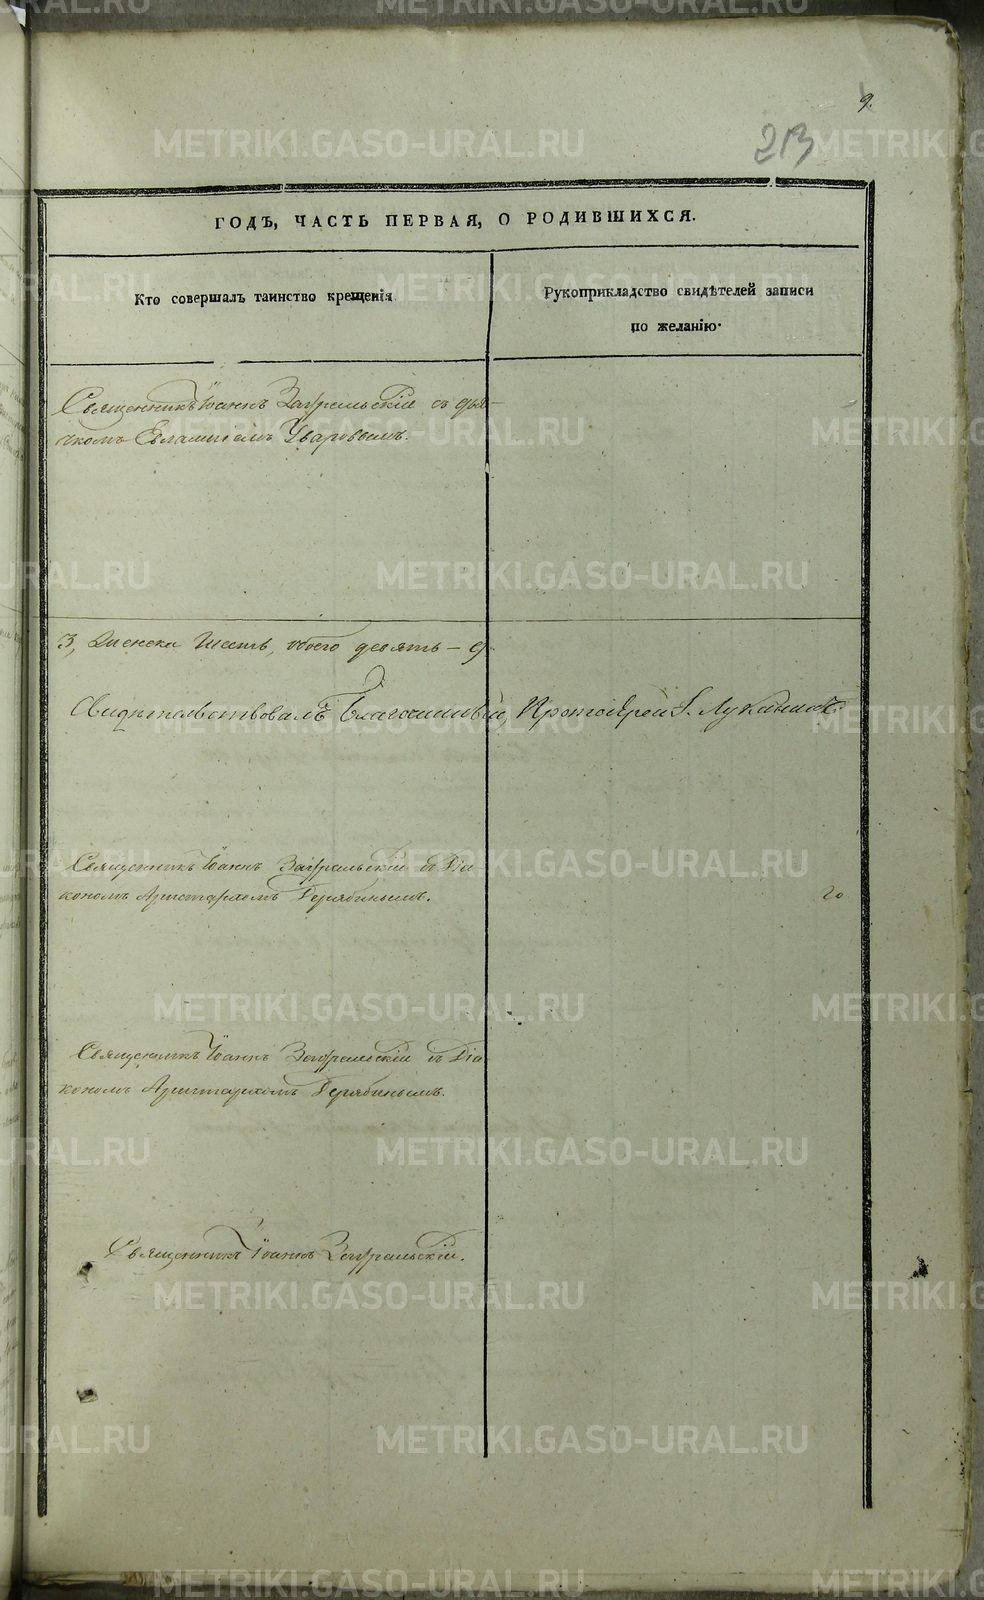 9.
213
ГОДЪ, ЧАСТЬ ПЕРВАЯ, О РОДИВШИХСЯ.
Кто совершалъ таинство крещенія
Рукоприкладство свидѣтелей записи
по желанію.
Священникъ Іоаннъ Зауральскій съ дья-
чкомъ Евлампіемъ Уваровымъ.
3, Женска шесть, обоего девять – 9
Свидѣтельствовалъ Благочинный, Протоіерей І. Лукинъ
Священникъ Іоаннъ Зауральскій съ Діа
кономъ Аристархомъ Терябинымъ.
20
Священникъ Іоаннъ Зауральскій съ Діа
кономъ Аристархомъ Терябинымъ.
Священникъ Іоаннъ Зауральскій.
METRIKI.GASO-URAL.RU